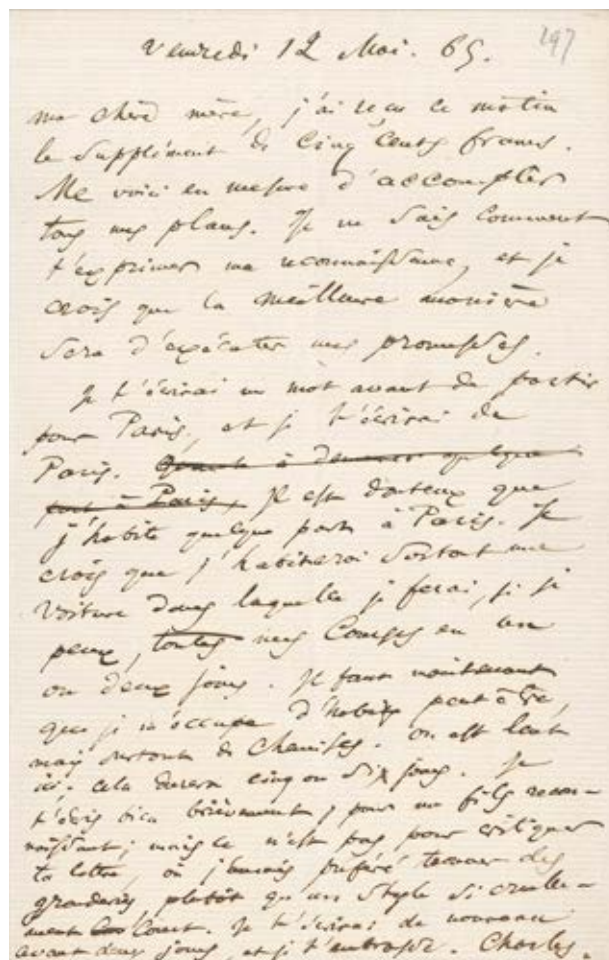 Vendredi 12 Mai. 65. 297
ma chère mère, j'ai reçu ce matin
le supplément de cinq cents francs.
Me voici en mesure d'accomplir
tous mes plans. Je ne sais comment
t'exprimer ma reconnaissance, et je
crois que la meilleure manière
sera d'exécuter mes promesses.
Je t'écrirai un mot avant de partir
pour Paris, et je t'écrirai de
Paris. Quant à demeurer quelque
part à Paris, Il est douteux que
j'habite quelque part à Paris. Je
crois que j'habiterai surtout une
voiture dans laquelle je ferai, si je
peux, toutes mes courses en un
ou deux jours. Il faut maintenant
que je m'occupe d'habits peut-être,
mais surtout de chemises. On est lent
ici. cela durera cinq ou six jours. Je
t'écris bien brièvement, pour un fils recon-
naissant; mais ce n'est pas pour critiquer
ta lettre, où j'aurais préféré trouver des
gronderies plutôt qu'un style si cruelle-
ment court. Je t'écrirai de nouveau
avant deux jours, et je t'embrasse. Charles.